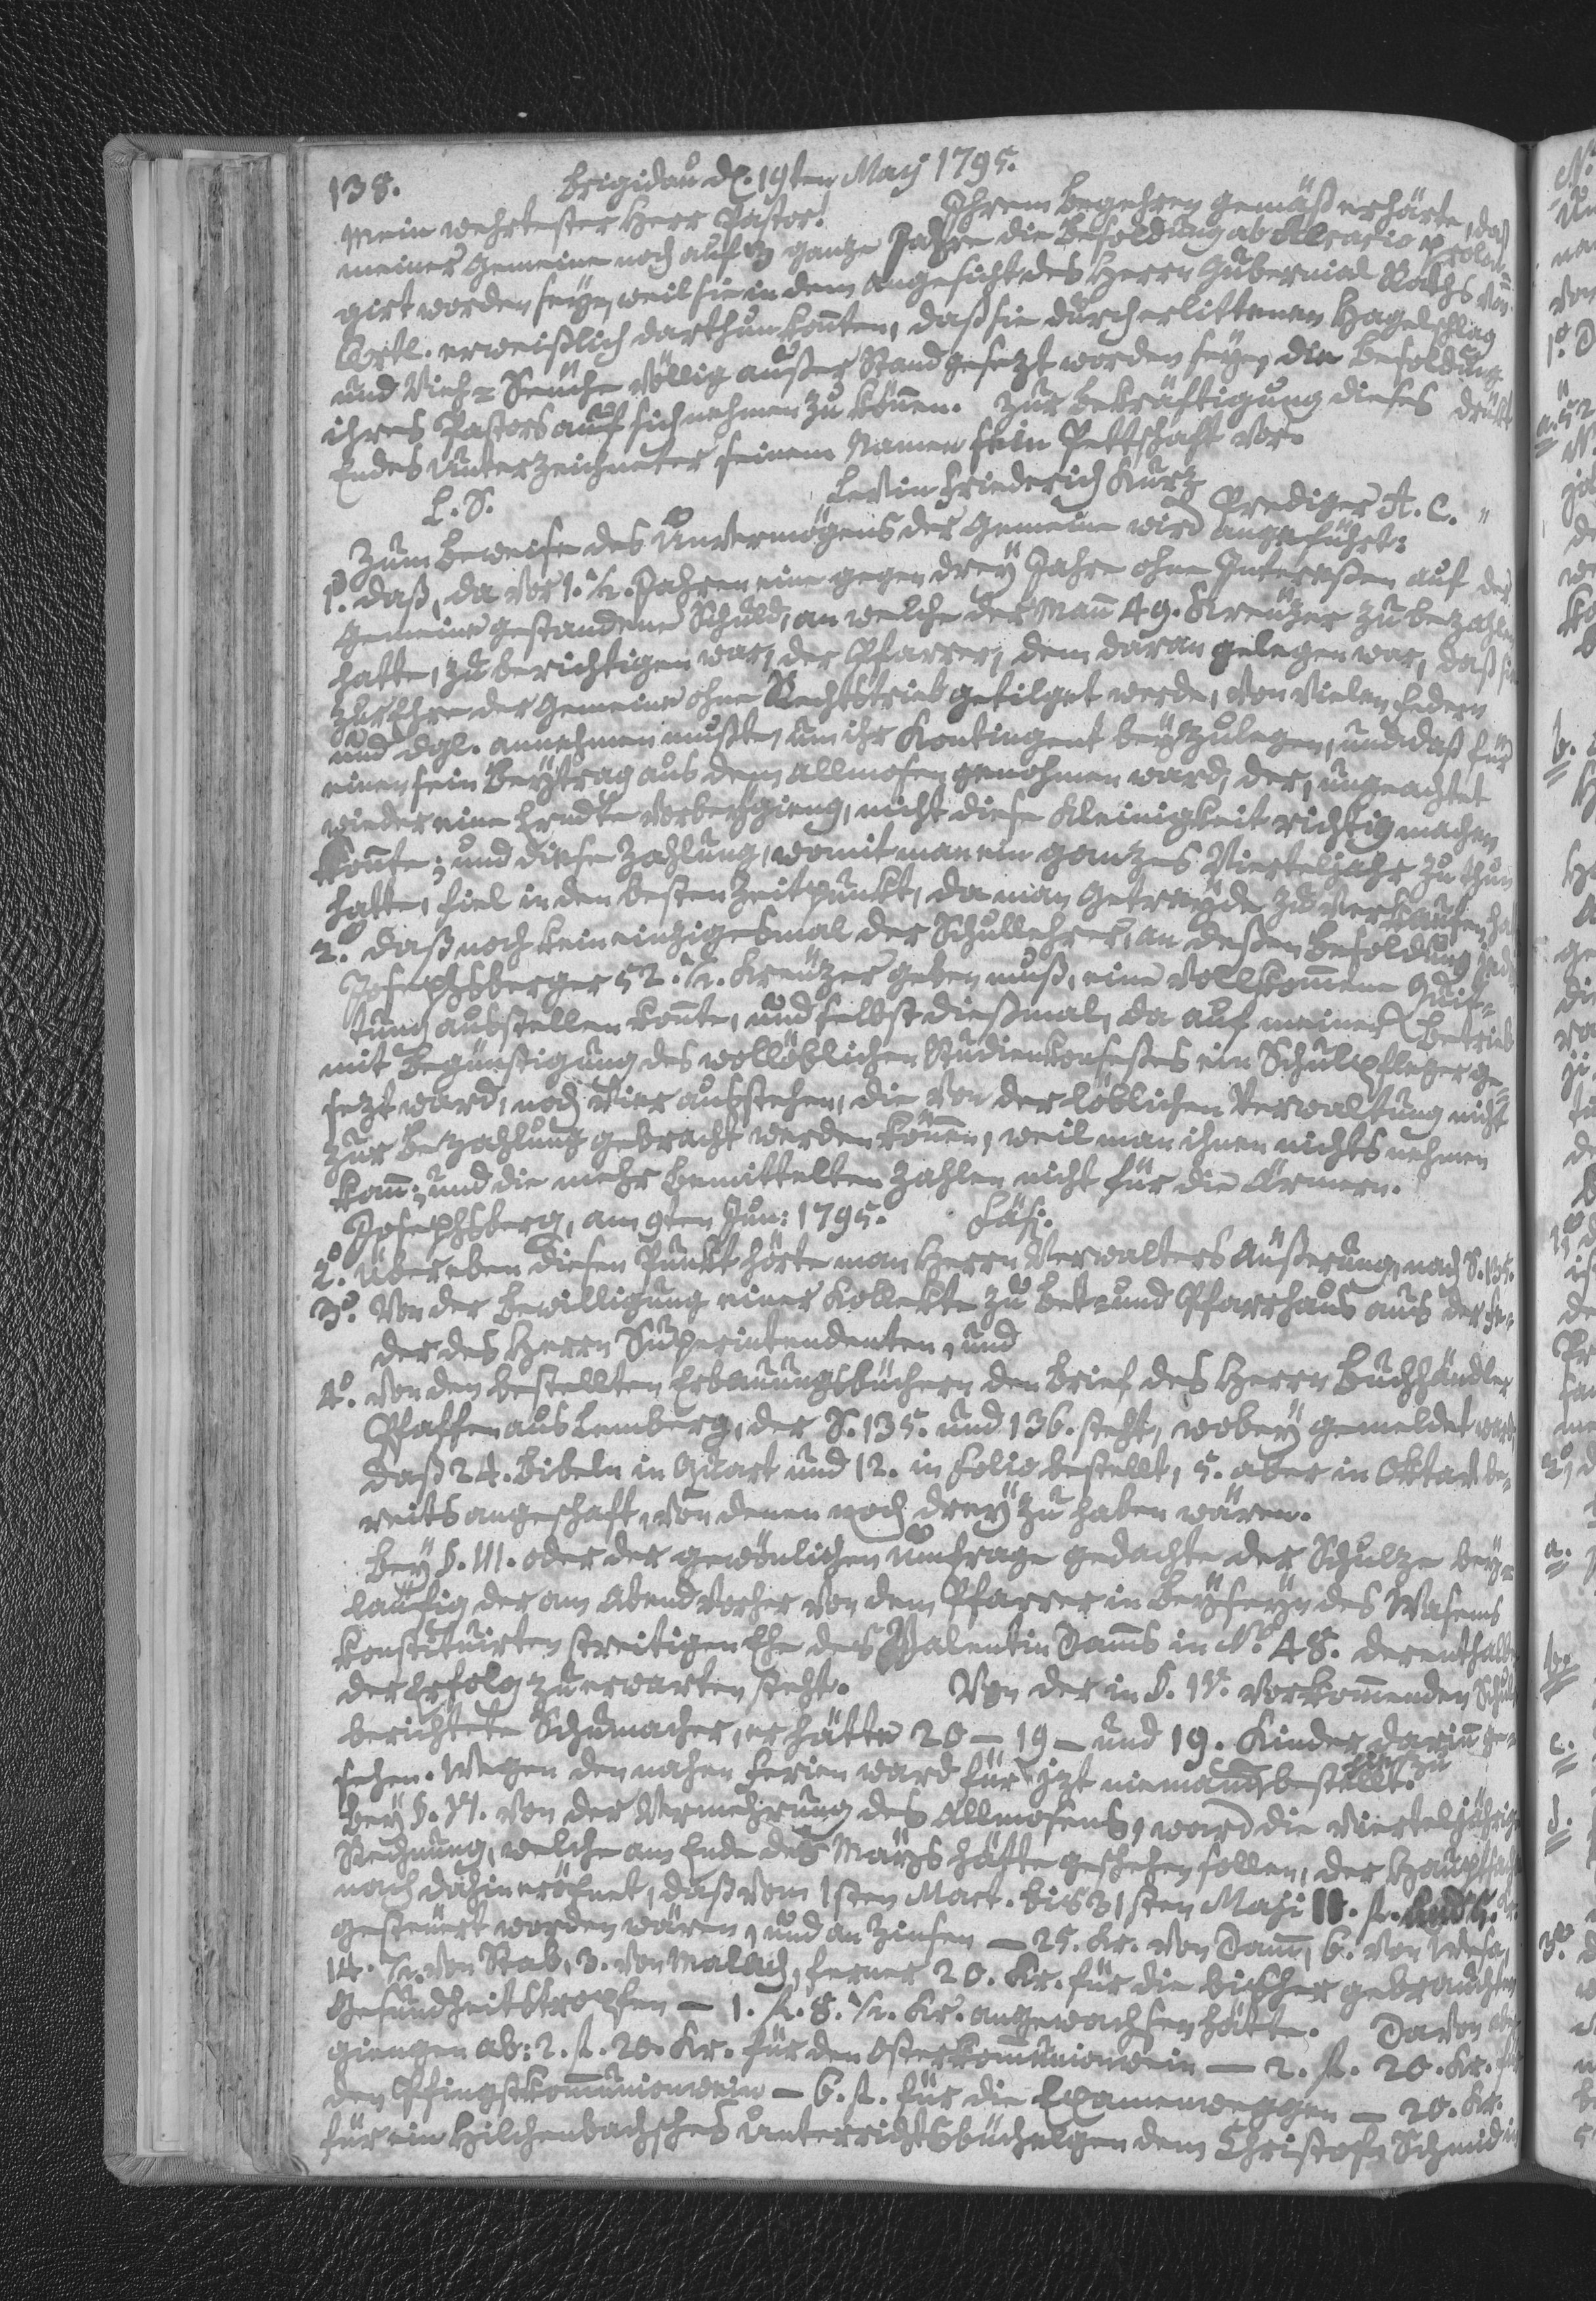 138.
Brigidau d. 19ten Maij 1795.
Mein wehrtester Herr Pastor! Ihrem Begehren gemäß erhärte, daß
meiner Gemeine noch auf 3 ganze Jahre die Besoldung ab Aerario prolon¬
girt worden seye, weil sie in dem Angesicht des Herrn Gubernial Raths von
erweißlich darthun konten, daß sie durch erlittenen Hagelschlag
und Vieh=Seuche völlig außer Stand gesezt worden seyen, die Besoldung
ihres Pastors auf sich nehmen zu können. Zur Bekräftigung dieses drükt
Endes Unterzeichneter seinem Namen sein Pettschaft vor.
L. S. Levin Friederich Kurtz
Prediger A. C. "
Zum Beweise des Unvermögens der Gemeine wird angeführt:
1º. daß, da vor 1. ½. Jahren eine gegen drey Jahre ohne Intereßen auf der
Gemeine gestandene Schuld, an welche der Mann 49. Kreuzer zu bezahlen
hatte, zu berichtigen war, der Pfarrer, dem daran gelegen war, daß sie
zur Ehre der Gemeine ohne Rechtstrieb getilget werde, von vielen Federn
und dgl. annehmen mußte, um ihr Kontingent beyzulegen, und daß für
einen sein Beytrag aus dem Allmosen genohmen ward, der, ungeachtet
wieder eine Erndte vorbeygieng, nicht diese Kleinigkeit richtig machen
konte; und diese Zahlung, womit man ein ganzes Vierteljahr zu thun
hatte, fiel in den besten Zeitpunkt, da man Getrayde zu verkaufen hat
2º. daß noch kein einzigesmal der Schullehrer, an deßen Besoldung jeder
Josephsberger 52. ½. Kreuzer geben muß, eine vollkommene Quit¬
tung ausstellen konte, und selbst dießmal, da auf meinen Betrieb
mit Begünstigung des wollöblichen Studienkonseßes ein Schulpfleger ge¬
sezt ward, noch vier ausstehen, die von der löblichen Verwaltung nicht
zur Bezahlung gebracht werden können, weil man ihnen nichts nehmen
kann; und die mehr Bemittelten zahlen nicht für die Ärmern.
Josephsberg, am 9ten Jun: 1795. Fäsi.
2º. Über eben diesen Punkt hörte man Herrn Verwalters Äußerung, nach S. 135.
3º. Von der Bewilligung einer Kollekte zu Bet= und Pfarrhaus aus der Fe¬
der des Herrn Superintendenten, und
4º. Von den bestellten Erbauungsbüchern den Brief des Herrn Buchhändler
Pfaffen aus Lemberg, der S. 135. und 136. steht, wobey gemeldet ward,
daß 24. Bibeln in Quart und 12. in Folio bestellt, 5. aber in Oktav be¬
reits angeschaft, von denen noch drey zu haben wären.
Bey §. III. oder der gewönlichen Umfrage gedachte der Schulze bey¬
läufig der am Abend vorher von dem Pfarrer in Beyseyn des Wasems
konstituirten streitigen Ehe des Valentin Damms in No. 48. derenthalben
der Erfolg zu erwarten steht. Von der in §. IV. vorkommenden Schule
berichtete Schumacher, er hätte 20 – 19 – und 19. Kinder darinn ge¬
sehen. Wegen den nahen Ferien ward für izt niemand bestellt.
Bey §. VI. von der Vermehrung des Allmosens, ward die vierteljährige
Rechnung, welche am Ende des Märzs hätte geschehen sollen, der Hauptsache
nach dahin eröfnet, daß vom 1sten Mart. bis 31sten Maji 11. fl.
gesteuert worden wären, und an Zinsen – 25. Kr. von Damm, 6. von Wesa,
14. ½. von Rab, 3. von Mallach, ferner 20. Kr. für die bisher gebrauchten
Gesundheitstropfen – 1. fl. 8. ½. Kr. angewachsen hätte. Davon aber
giengen ab: 2. fl. 20. Kr. für den Osterkommunionwein – 2. fl. 20. Kr. für
den Pfingstkommunionwein – 6. fl. für die Examenweggen – 20. Kr.
für ein Hilchenbachsches Unterrichtsbüchelgen dem Christofh Schmid in